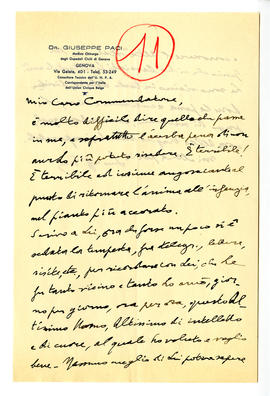 DR. GIUSEPPE PACI
Medico Chirurgo
degli Ospedali Civili di Genova
GENOVA
Via Galata, 40/1 - Telef. 53-249
Consulente Tecnico dell'U. N. P. A.
Corrispondente per l'Italia
dell'Union Civique Belge
11
Mio Caro Commendatore,
È molto difficile dire quello che passa
in me, e soprattutto l'acerba pena di non
averlo più potuto rivedere. È terribile!
È terribile ed insieme angosciante al
punto di ritornare l'anima all'infanzia,
nel pianto più accorato.
Scrivo a Lei, ora che forse un poco si è
sedata la tempesta, fra telegr., lettere,
visite, etc, per ricordare con lei, che ha
tanto visino e tanto ha amato, gior-
no per giorno, ora per ora, questo Al-
tissimo Uomo, Altissimo di intelletto
e di cuore, al quale ho voluto e voglio
bene - Nessuno meglio di Lei poteva sapere